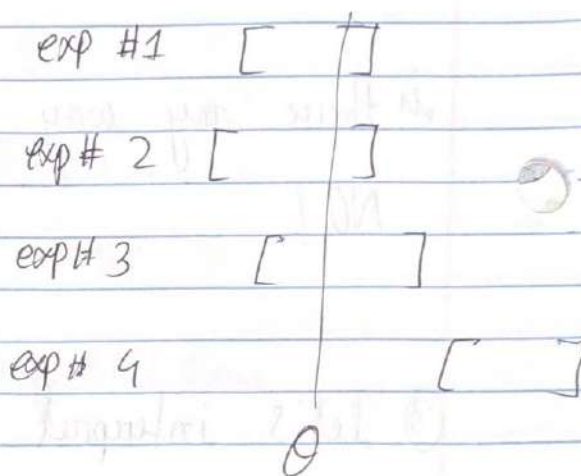 exp #1 [ ]
exp # 2 [ ]
exp # 3 [ ]
exp # 4 [ ]
θ